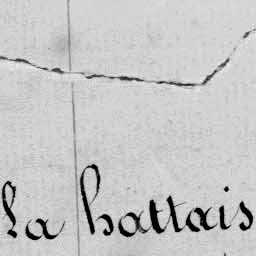 La hattais